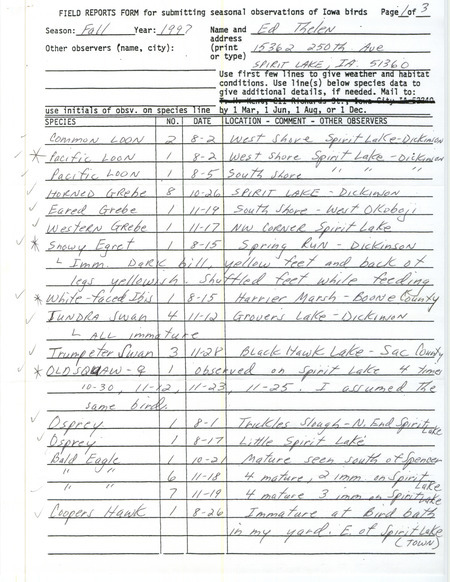 FIELD REPORTS FORM for submitting seasonal observations of Iowa birds Page 1 of 3
Season: Fall Year: 1997 Name and Ed Thelen
address 15362 250th Ave
Other observers (name, city): (print
or type) SPIRIT LAKE, IA. 51360
Use first few lines to give weather and habitat
conditions. Use line(s) below species data to
give additional details, if needed. Mail to:
use initials of obsv. on species line by 1 Mar, 1 Jun, 1 Aug, or 1 Dec.
SPECIES NO. DATE LOCATION - COMMENT - OTHER OBSERVERS
Common Loon 2 8-2 West Shore Spirit Lake-Dickinson
* Pacific Loon 1 8-2 West Shore Spirit Lake - Dickinson
Pacific Loon 1 8-5 South Shore " " "
Horned Grebe 8 10-26 SPIRIT LAKE - DICKINSON
Eared Grebe 1 11-19 South Shore - West Okoboji
Western Grebe 1 11-17 NW CORNER Spirit Lake
* Snowy Egret 1 8-15 Spring Run - Dickinson
Imm. Dark bill, yellow feet and back of
legs yellowish. Shuffled feet while feeding
* White-faced Ibis 1 8-15 Harrier Marsh - Boone County
Tundra Swan 4 11-12 Grovers Lake - Dickinson
ALL immature
Trumpeter Swan 3 11-28 Black Hawk Lake - Sac County
* OLDSQUAW-♀ 1 observed on Spirit Lake 4 times
10-30, 11-12, 11-23, 11-25. I assumed the
same bird.
Osprey 1 8-1 Trickles Slough - N. End Spirit Lake
Osprey 1 8-17 Little Spirit Lake
Bald Eagle 1 10-21 Mature seen south of Spencer
" " 6 11-18 4 mature, 2 imm. on Spirit Lake
" " 7 11-19 4 mature 3 imm on Spirit Lake
Coopers Hawk 1 8-26 Immature at Bird bath
in my yard. E. of Spirit Lake
(TOWN)